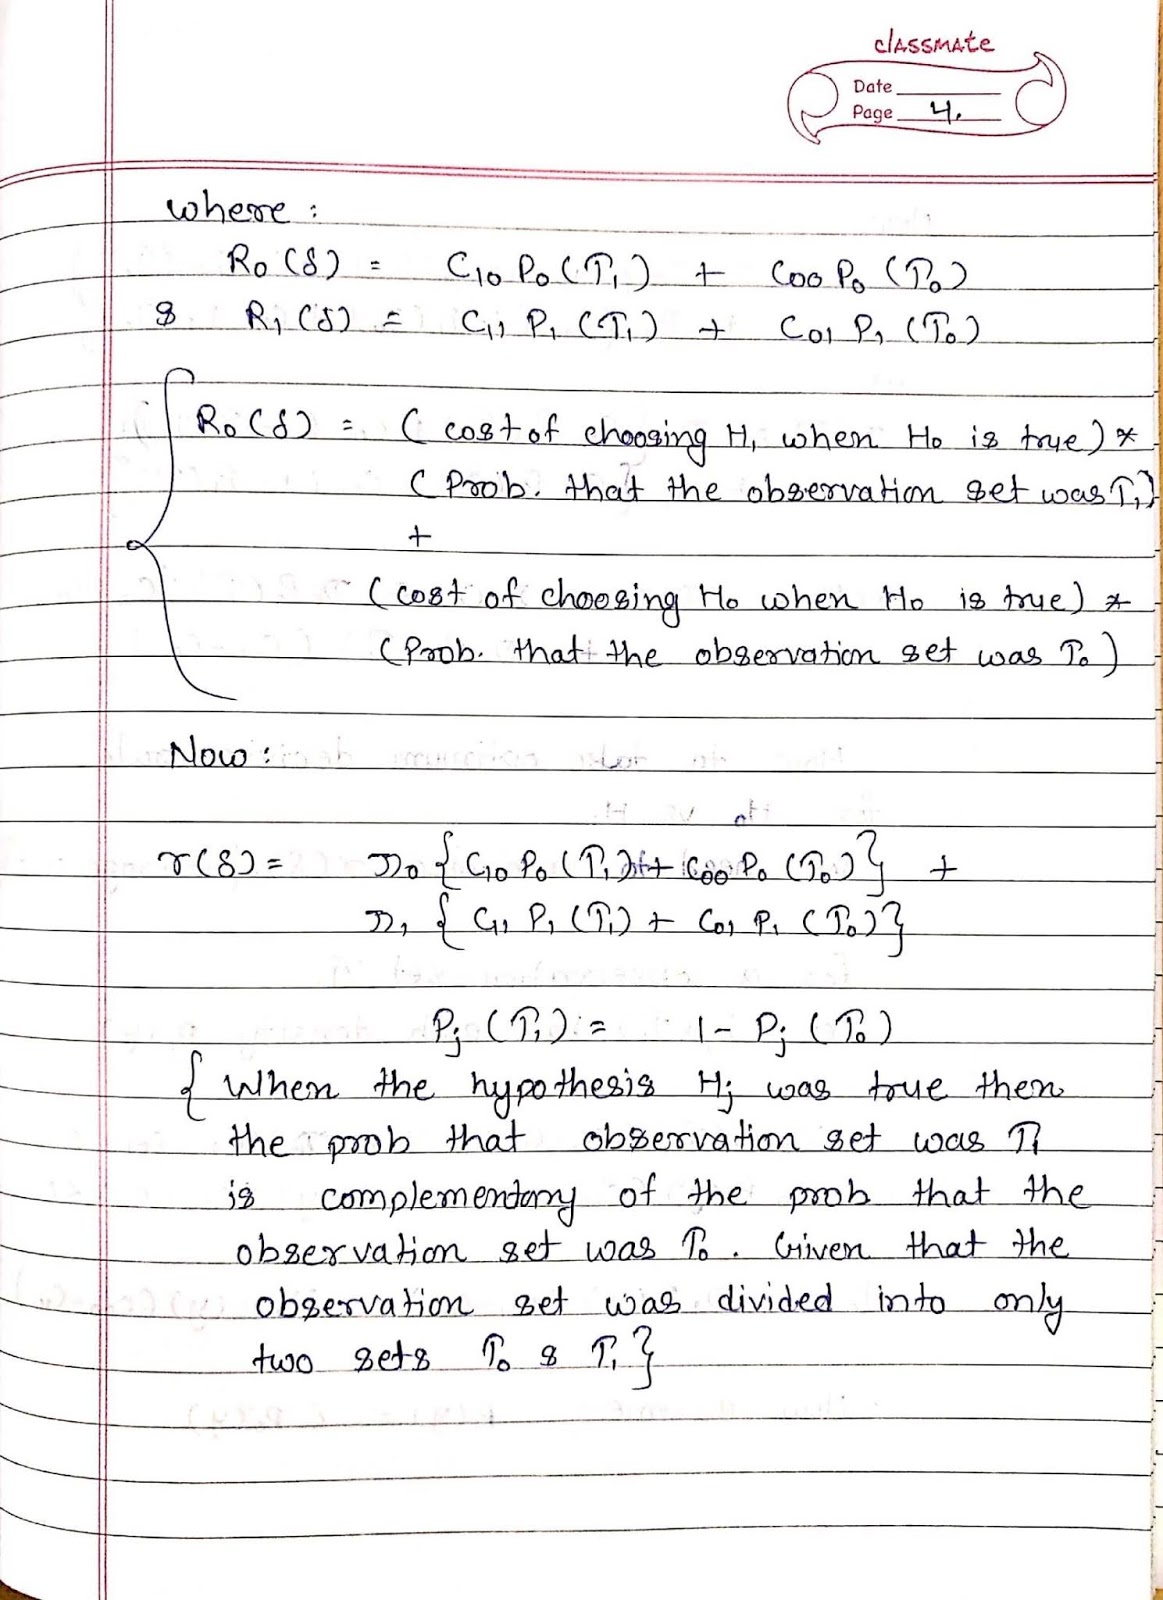 classmate
Date
Page 4.
where :
R₀(δ) = C₁₀ P₀(Γ₁) + C₀₀ P₀(Γ₀)
& R₁(δ) = C₁₁ P₁(Γ₁) + C₀₁ P₁(Γ₀)
{ R₀(δ) = (cost of choosing H₁ when H₀ is true) *
(Prob. that the observation set was Γ₁)
+
(cost of choosing H₀ when H₀ is true) *
(Prob. that the observation set was Γ₀)
Now :
r(δ) = π₀ {C₁₀ P₀(Γ₁) + C₀₀ P₀(Γ₀)} +
π₁ {C₁₁ P₁(Γ₁) + C₀₁ P₁(Γ₀)}
Pⱼ(Γ₁) = 1 - Pⱼ(Γ₀)
{ When the hypothesis Hⱼ was true then
the prob that observation set was Γ₁
is complementary of the prob that the
observation set was Γ₀. Given that the
observation set was divided into only
two sets Γ₀ & Γ₁ }